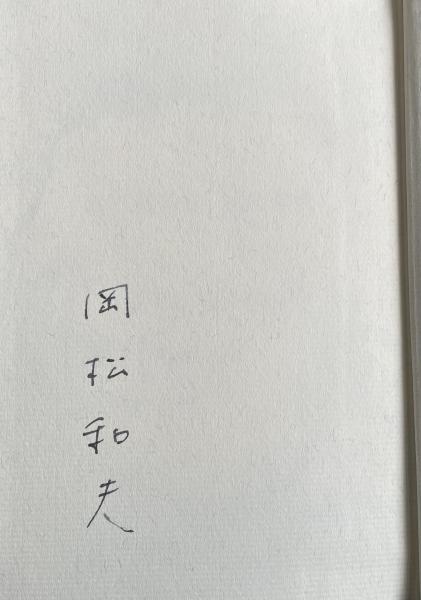 岡松和夫